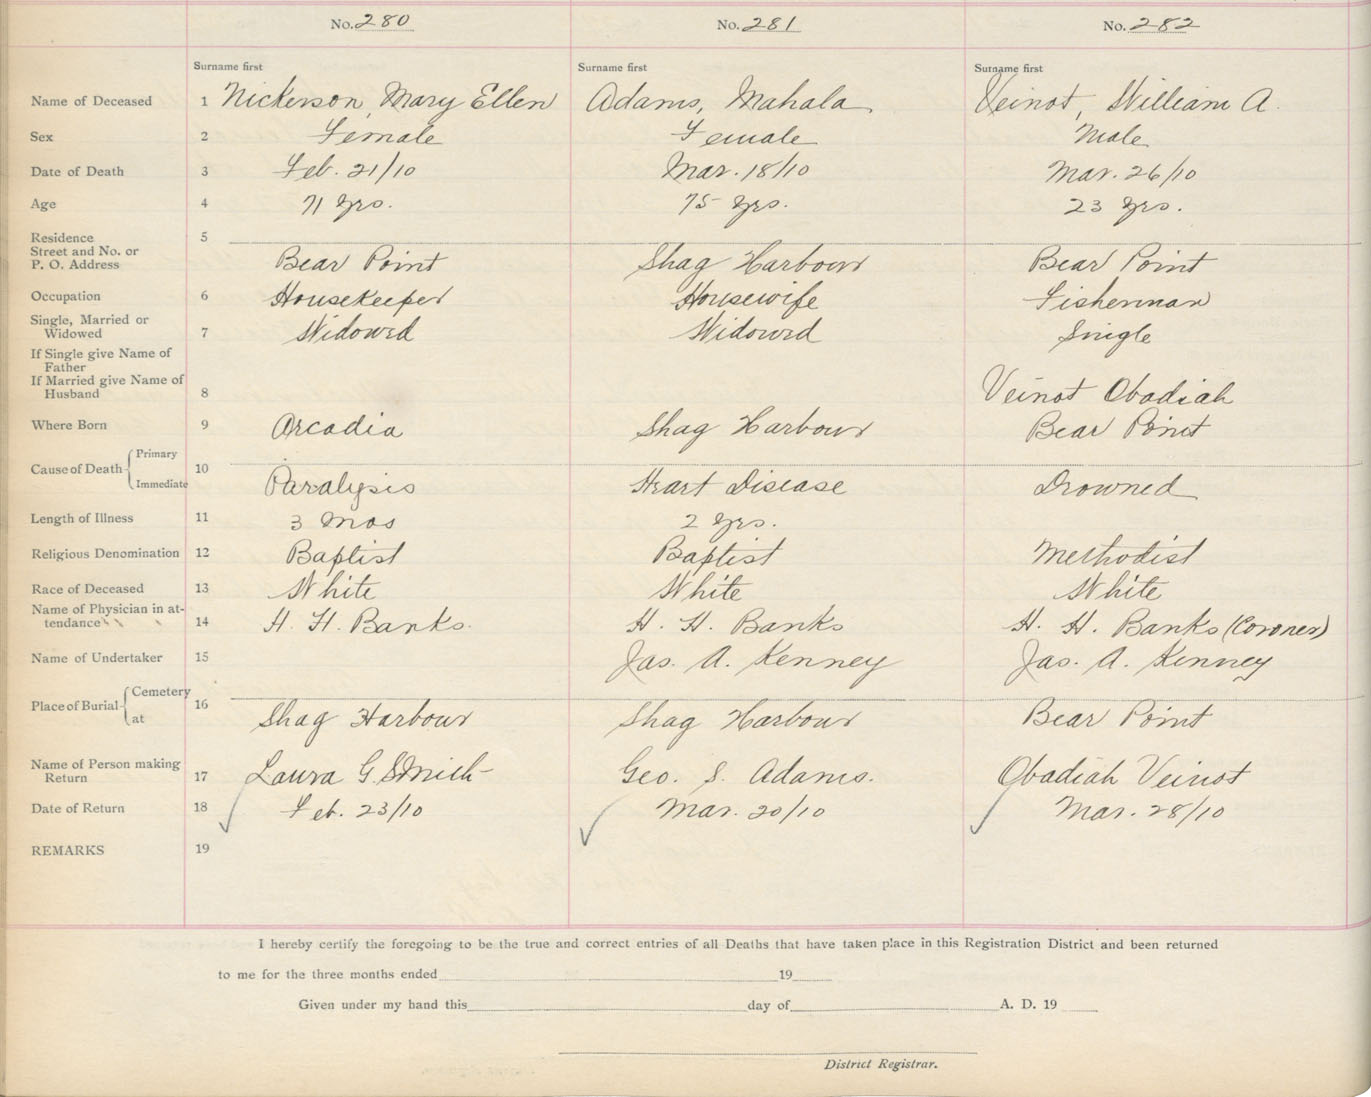 No. 280 No. 281 No. 282
Surname first Surname first Surname first
Name of Deceased 1 Nickerson, Mary Ellen Adams, Mahala, Veinot, William A.
Sex 2 Female Female Male
Date of Death 3 Feb. 21/10 Mar. 18/10 Mar. 26/10
Age 4 71 yrs. 75 yrs. 23 yrs.
Residence 5
Street and No. or
P. O. Address Bear Point Shag Harbour Bear Point
Occupation 6 Housekeeper Housewife Fisherman
Single, Married or
Widowed 7 Widowed Widowed Single
If Single give Name of
Father
If Married give Name of
Husband 8 Veinot Obadiah
Where Born 9 Arcadia Shag Harbour Bear Point
Cause of Death Primary 10
Immediate Paralysis Heart Disease Drowned
Length of Illness 11 3 Mos 2 yrs.
Religious Denomination 12 Baptist Baptist Methodist
Race of Deceased 13 White White White
Name of Physician in at-
tendance 14 H. H. Banks. H. H. Banks H. H. Banks (Coroner)
Name of Undertaker 15 Jas. A. Kenney Jas. A. Kenney
Place of Burial Cemetery 16
at Shag Harbour Shag Harbour Bear Point
Name of Person making
Return 17 Laura G. Smith Geo. S. Adams. Obadiah Veinot
Date of Return 18 Feb. 23/10 Mar. 20/10 Mar. 28/10
REMARKS 19
I hereby certify the foregoing to be the true and correct entries of all Deaths that have taken place in this Registration District and been returned
to me for the three months ended 19
Given under my hand this day of A. D. 19
District Registrar.